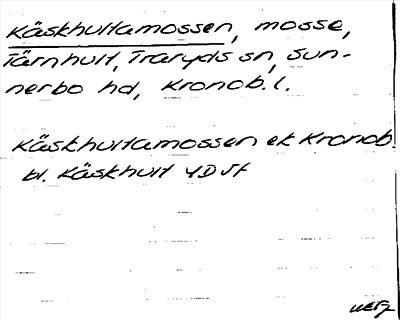 Käskhultamossen, mosse,
Tärnhult, Traryds sn, Sun-
nerbo hd, Kronob. l.
Käskhultamossen ek Kronob
bl. Käskhult 4D5f